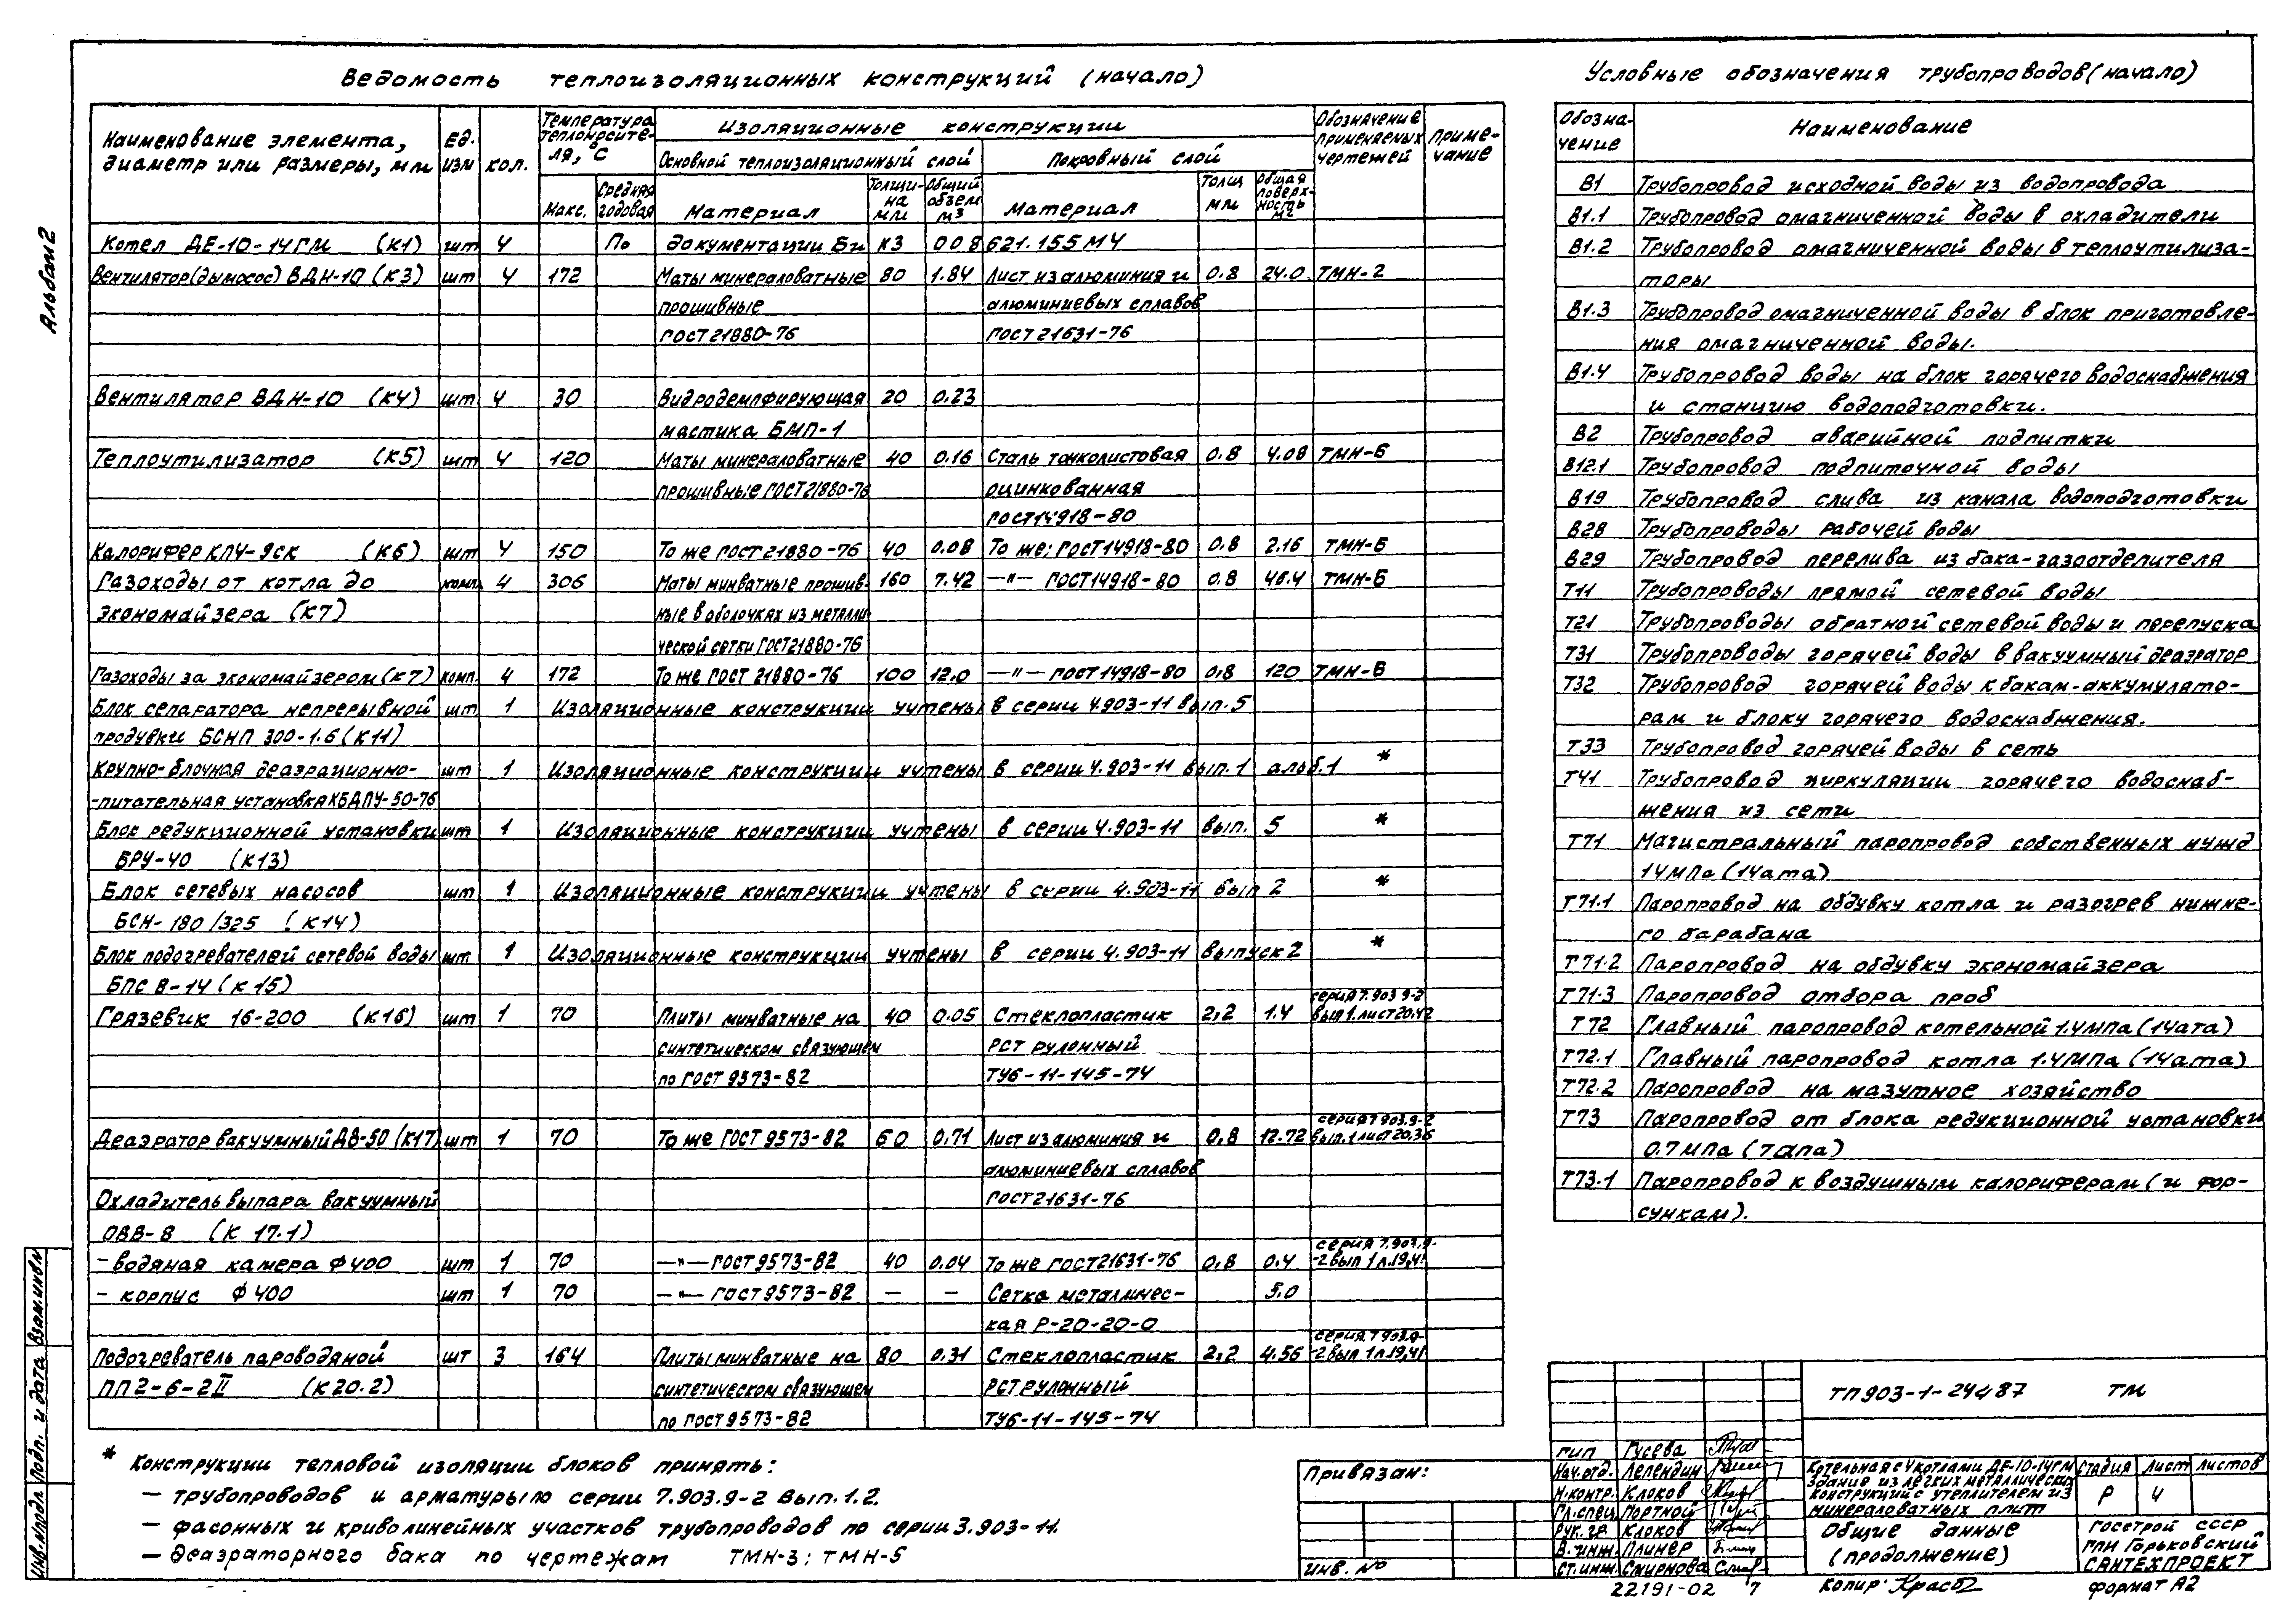 Альбом 2
Ведомость теплоизоляционных конструкций (начало)
Наименование элемента, диаметр или размеры, мм
Ед. изм
кол.
Температура теплоносителя, °С
Макс.
Средняя годовая
Изоляционные конструкции
Основной теплоизоляционный слой
Материал
Толщина мм
Общий объем м3
Покровный слой
Материал
Толщ мм
Общая поверхность м2
Обозначение применяемых чертежей
Примечание
Котел ДЕ-10-14ГМ (К1) шт 4 По документации Би КЗ 008621.155МЧ
Вентилятор (дымосос) ВДН-10 (К3) шт 4 172 Маты минераловатные 80 1.84 Лист из алюминия и 0.8 24.0 ТМН-2
прошивные алюминиевых сплавов
ГОСТ 21880-76 ГОСТ 21631-76
Вентилятор ВДН-10 (К4) шт 4 30 Видродемпфирующая 20 0.23
мастика БМП-1
Теплоутилизатор (К5) шт 4 120 Маты минераловатные 40 0.16 Сталь тонколистовая 0.8 4.08 ТМН-6
прошивные ГОСТ 21880-76 оцинкованная
ГОСТ 14918-80
Калорифер КПЧ-9СК (К6) шт 4 150 То же ГОСТ 21880-76 40 0.08 То же: ГОСТ 14918-80 0.8 2.16 ТМН-6
Газоходы от котла до компл 4 306 Маты минватные прошив- 160 7.42 —"— ГОСТ 14918-80 0.8 46.4 ТМН-6
экономайзера (К7) ные в оболочках из металли
ческой сетки ГОСТ 21880-76
Газоходы за экономайзером (К7) комп. 4 172 То же ГОСТ 21880-76 100 12.0 —"— ГОСТ 14918-80 0.8 120 ТМН-6
Блок сепаратора непрерывной шт 1 Изоляционные конструкции учтены в серии 4.903-11 вып. 5
продувки БСНП 300-1.6 (К11)
Крупно-блочная деаэрационно- шт 1 Изоляционные конструкции учтены в серии 4.903-11 вып. 1 альб. 1 *
-питательная установка КБДПУ-50-76
Блок редукционной установки шт 1 Изоляционные конструкции учтены в серии 4.903-11 вып. 5 *
БРУ-40 (К13)
Блок сетевых насосов шт 1 Изоляционные конструкции учтены в серии 4.903-11 вып 2 *
БСН-180/325 (К14)
Блок подогревателей сетевой воды шт 1 Изоляционные конструкции учтены в серии 4.903-11 выпуск 2 *
БПС 8-14 (К15)
Грязевик 16-200 (К16) шт 1 70 Плиты минватные на 40 0.05 Стеклопластик 2,2 1.4 серия 7.903 9-2 вып 1. лист 20.42
синтетическом связующем РСТ рулонный
по ГОСТ 9573-82 ТУ6-11-145-74
Деаэратор вакуумный ДВ-50 (К17) шт 1 70 То же ГОСТ 9573-82 60 0.71 Лист из алюминия и 0.8 12.72 серия 7 903.9-2 вып. 1 лист 20,36
алюминиевых сплавов
Охладитель выпара вакуумный ГОСТ 21631-76
ОВВ-8 (К 17.1)
- водяная камера Ф400 шт 1 70 —"— ГОСТ 9573-82 40 0.04 То же ГОСТ 21631-76 0,8 0.4 серия 7.903.9--2 вып 1 л.19,41
- корпус Ф400 шт 1 70 —"— ГОСТ 9573-82 — — Сетка металличес- 5.0
кая Р-20-20-0
Подогреватель пароводяной шт 3 164 Плиты минватные на 80 0.31 Стеклопластик 2,2 4.56 серия 7 903.9--2 вып 1 л.19,41
ПП2-6-2II (К20.2) синтетическом связующем РСТ рулонный
по ГОСТ 9573-82 ТУ6-11-145-74
* Конструкции тепловой изоляции блоков принять:
— трубопроводов и арматуры по серии 7.903.9-2 вып. 1.2.
— фасонных и криволинейных участков трубопроводов по серии 3.903-11.
— деаэраторного бака по чертежам ТМН-3; ТМН-5
Условные обозначения трубопроводов (начало)
Обозна-чение Наименование
В1 Трубопровод исходной воды из водопровода
В1.1 Трубопровод омагниченной воды в охладители
В1.2 Трубопровод омагниченной воды в теплоутилиза-
торы
В1.3 Трубопровод омагниченной воды в блок приготовле-
ния омагниченной воды.
В1.4 Трубопровод воды на блок горячего водоснабжения
и станцию водоподготовки.
В2 Трубопровод аварийной подпитки
В12.1 Трубопровод подпиточной воды
В19 Трубопровод слива из канала водоподготовки
В28 Трубопроводы рабочей воды
В29 Трубопровод перелива из бака-газоотделителя
Т11 Трубопроводы прямой сетевой воды
Т21 Трубопроводы обратной сетевой воды и перепуска
Т31 Трубопроводы горячей воды в вакуумный деаэратор
Т32 Трубопровод горячей воды к бакам-аккумулято-
рам и блоку горячего водоснабжения.
Т33 Трубопровод горячей воды в сеть
Т41 Трубопровод циркуляции горячего водоснаб-
жения из сети
Т71 Магистральный паропровод собственных нужд
14МПа (14ата)
Т71.1 Паропровод на обдувку котла и разогрев нижне-
го барабана
Т71.2 Паропровод на обдувку экономайзера
Т71.3 Паропровод отбора проб
Т72 Главный паропровод котельной 1.4МПа (14ата)
Т72.1 Главный паропровод котла 1.4МПа (14ата)
Т72.2 Паропровод на мазутное хозяйство
Т73 Паропровод от блока редукционной установки
0.7 МПа (7апа)
Т73.1 Паропровод к воздушным калориферам (и фор-
сункам).
Привязан:
Инв. №
ТП 903-1-244 87 ТМ
ГИП Гусева
Нач. отд. Лепендин
Н.контр. Клоков
Гл.спец Портной
Рук. гр Клоков
В. инж. Плинер
Ст. инж. Смирнова
Котельная с 4 котлами ДЕ-10-14ГМ
Здание из легких металлических
конструкций с утеплителем из
минераловатных плит
Стадия Лист Листов
Р 4
Общие данные
(продолжение)
Госстрой СССР
ГПИ Горьковский
САНТЕХПРОЕКТ
22191-02 7
Копир:
формат А2
Инв. № подл Подп. и дата Взам. инв №